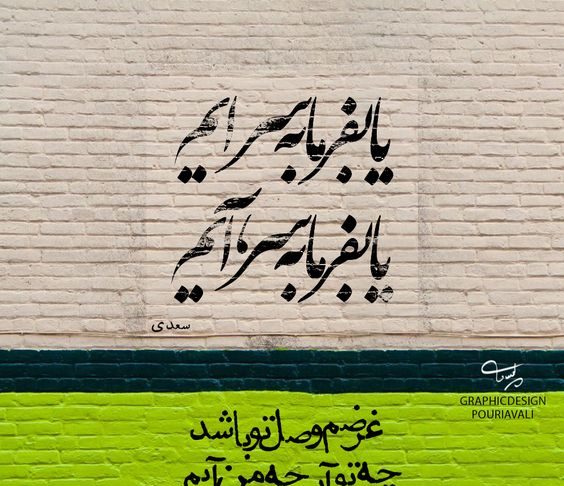 یا بفرما به سرایم
یا بفرما به سر، آیم
سعدی
GRAPHICDESIGN
POURIAVALI
غرضم وصل تو باشد
چه تو چه من آیم